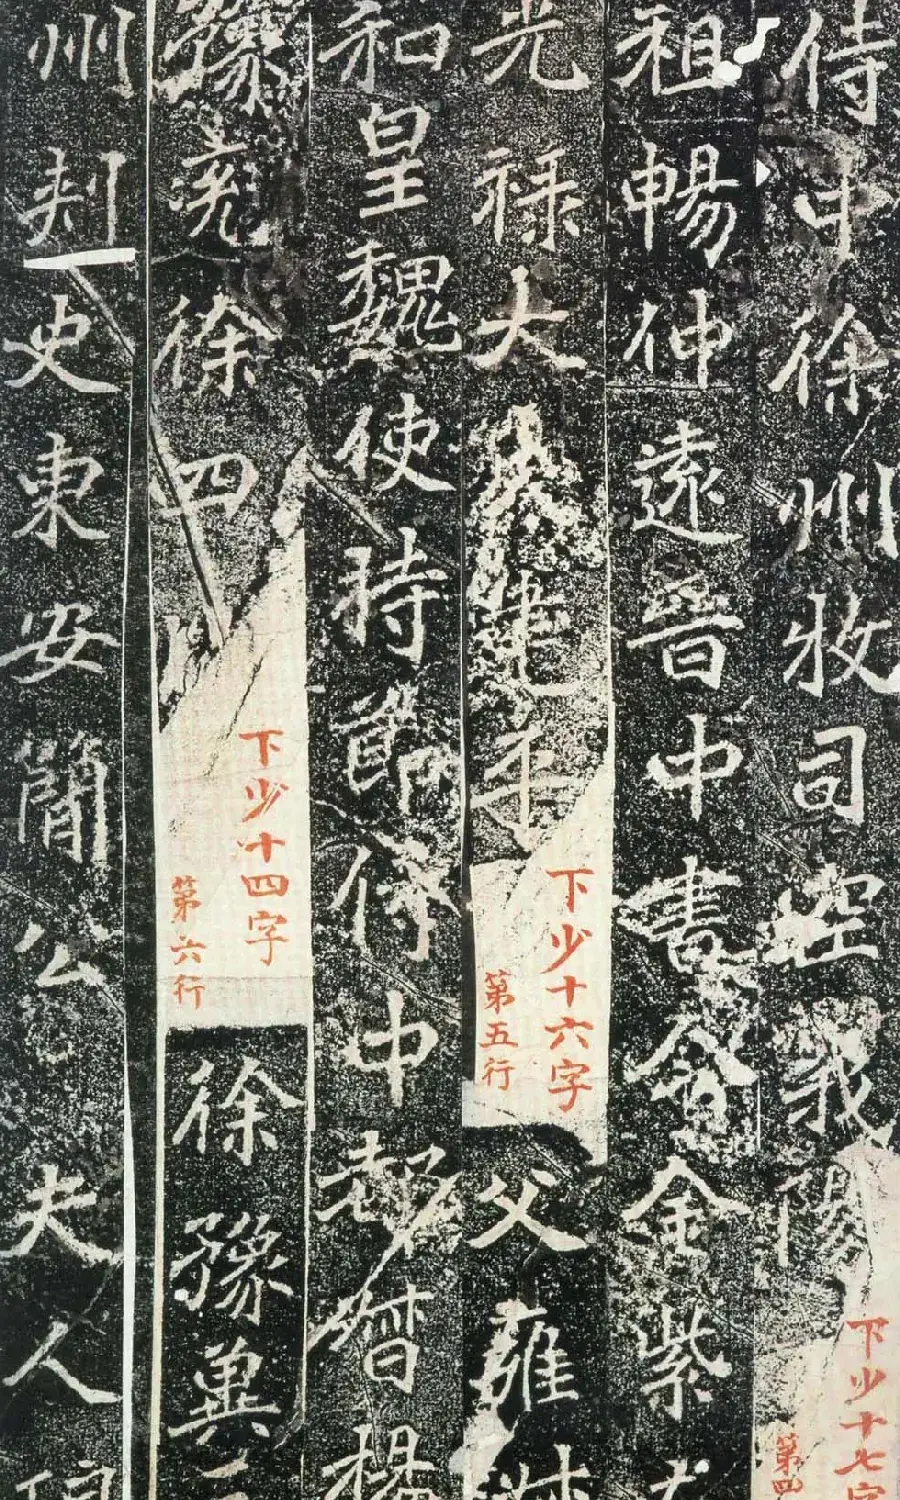 侍中徐州牧司空義陽
下少十七字
第四
祖暢仲遠晉中書令金紫
光祿大夫建平
下少十六字
第五行
父雍淑
和皇魏使持節侍中都督楊
豫兗徐四
下少十四字
第六行
徐豫冀
州刺史東安簡公夫人